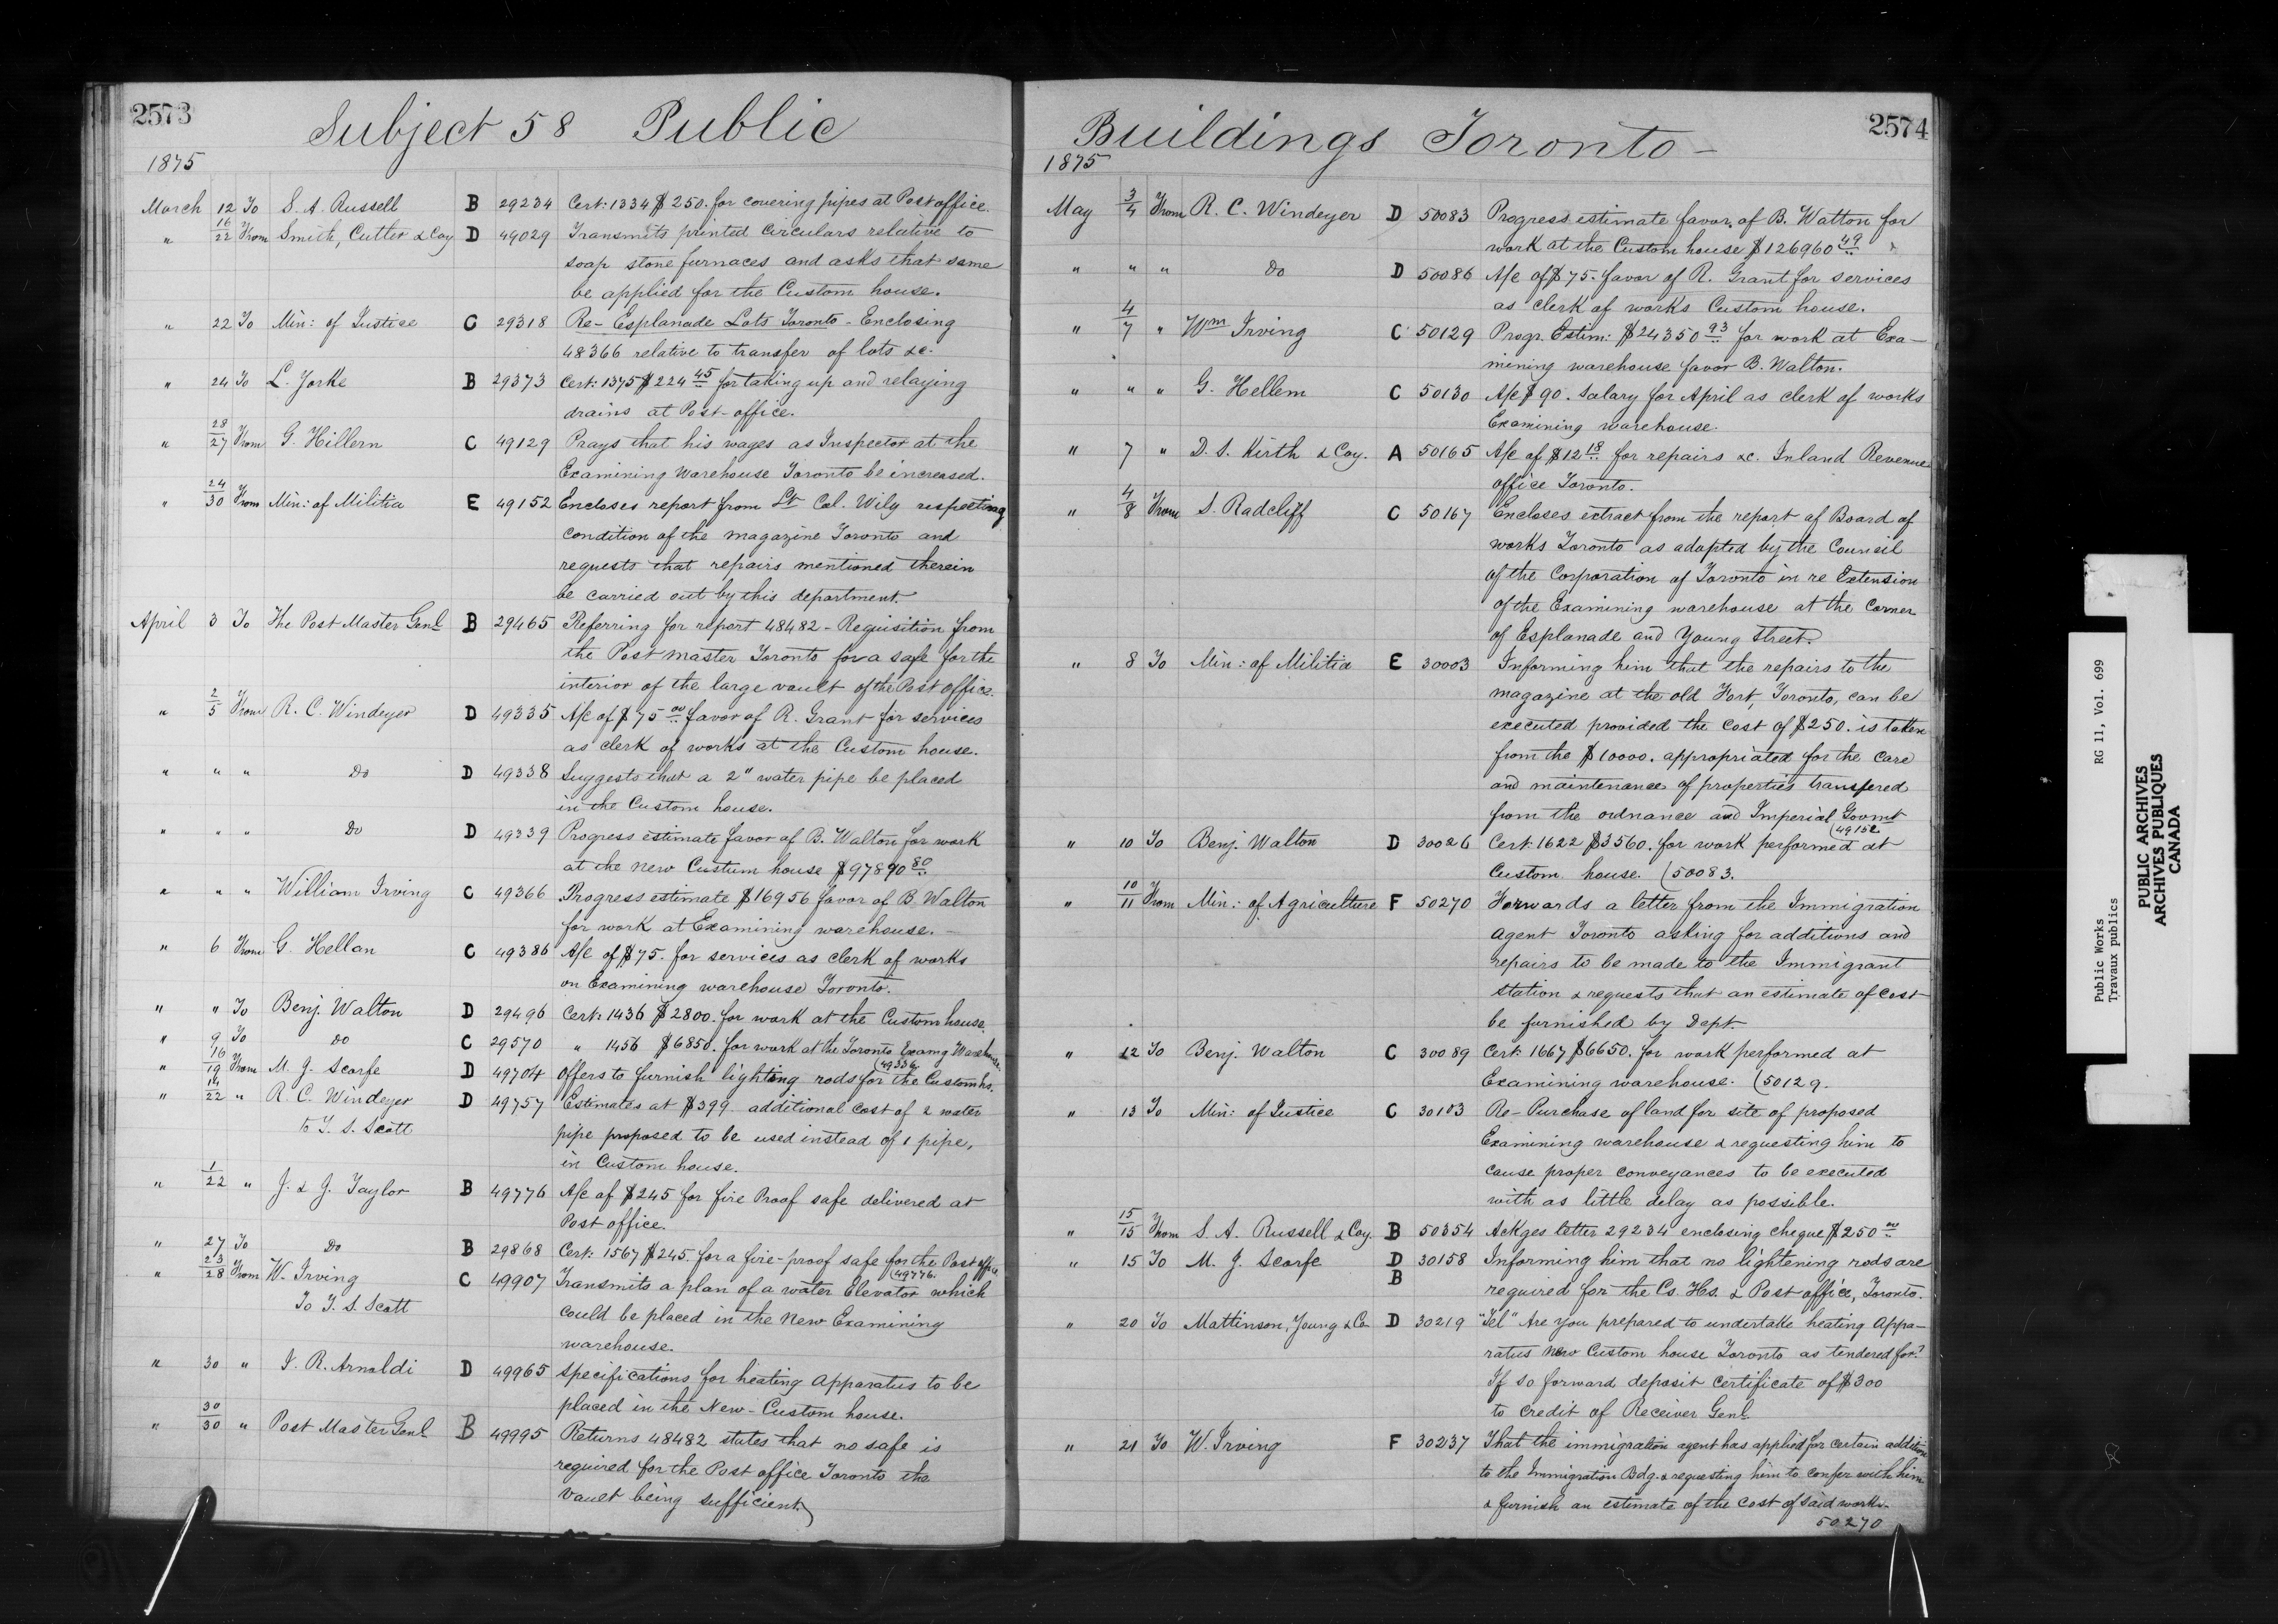 2573
Subject 58 Public
1875
March 12 To S. A. Russell B 29234 Cert: 1334 $250. for covering pipes at Post office.
" 16/22 From Smith, Cutter & Coy D 49029 Transmits printed Circulars relative to
soap stone furnaces and asks that same
be applied for the Custom house.
" 22 To Min: of Justice C 29318 Re- Esplanade Lots Toronto - Enclosing
48366 relative to transfer of lots &c.
" 24 To L. Yorke B 29373 Cert: 1375 $224 45 for taking up and relaying
drains at Post-office.
" 28/27 From G. Hillern C 49129 Prays that his wages as Inspector at the
Examining Warehouse Toronto be increased.
" 24/30 From Min: of Militia E 49152 Encloses report from Lt Col. Wily respecting
condition of the magazine Toronto and
requests that repairs mentioned therein
be carried out by this department.
April 3 To The Post Master Genl B 29465 Referring for report 48482 - Requisition from
the Post master Toronto for a safe for the
interior of the large vault of the Post office.
" 2/5 From R. C. Windeyer D 49335 A/c of $75 00 favor of R. Grant for services
as clerk of works at the Custom house.
" " " Do D 49338 Suggests that a 2" water pipe be placed
in the Custom house.
" " " Do D 49339 Progress estimate favor of B. Walton for work
at the new Custum house $97890 80
" " " William Irving C 49366 Progress estimate $16956 favor of B. Walton
for work at Examining warehouse. -
" 6 From G. Hellan C 49386 A/c of $75. for services as clerk of works
on Examining warehouse Toronto.
" " To Benj. Walton D 29496 Cert: 1436 $2800. for work at the Custom house.
" 9 To do C 29570 " 1456 $6850. for work at the Toronto Examg Warehouse.
" 16/19 From M. J. Scarfe D 49704 Offers to furnish lighting rods for the Custom hs.
" 14/22 " R. C. Windeyer D 49757 Estimates at $399 additional cost of 2 water
to T. S. Scott pipe proposed to be used instead of 1 pipe,
in Custom house.
" 1/22 " J. & J. Taylor B 49776 A/c of $245 for fire Proof safe delivered at
Post office.
" 27 To Do B 29868 Cert: 1567 $245. for a fire-proof safe for the Post office
(49776.
" 23/28 From W. Irving C 49907 Transmits a plan of a water Elevator which
To T. S. Scott could be placed in the New Examining
warehouse.
" 30 " J. R. Arnoldi D 49965 Specifications for heating Apparatus to be
placed in the New-Custom house.
" 30/30 " Post Master Genl B 49995 Returns 48482 states that no safe is
required for the Post office Toronto the
vault being sufficient.
2574
Buildings Toronto -
1875
May 3/4 From R. C. Windeyer D 50083 Progress estimate favor of B. Walton for
work at the Custom house $126960 49
" " " Do D 50086 A/c of $75. favor of R. Grant for services
as clerk of works Custom house.
" 4/7 " Wm Irving C 50129 Progr. Estim: $24350 93 for work at Exa-
mining warehouse favor B. Walton.
" " " G. Hellem C 50130 A/c $90. Salary for April as clerk of works
Examining warehouse.
" 7 " D. S. Kirth & Coy. A 50165 A/c of $12 18 for repairs &c. Inland Revenue
office Toronto.
" 4/8 From S. Radcliff C 50167 Encloses extract from the report of Board of
works Toronto as adapted by the Council
of the Corporation of Toronto in re Extension
of the Examining warehouse at the Corner
of Esplanade and Young Street.
" 8 To Min: of Militia E 30003 Informing him that the repairs to the
magazine at the old Fort, Toronto, can be
executed provided the cost of $250. is taken
from the $10000. appropriated for the care
and maintenance of properties transfered
from the ordnance and Imperial Govmt
(49152
" 10 To Benj. Walton D 30026 Cert: 1622 $3560. for work performed at
Custom house. (50083.
" 10/11 From Min: of Agriculture F 50270 Forwards a letter from the Immigration
Agent Toronto asking for additions and
repairs to be made to the Immigrant
Station & requests that an estimate of cost
be furnished by Dept.
" 12 To Benj. Walton C 30089 Cert: 1667 $6650. for work performed at
Examining warehouse. (50129.
" 13 To Min: of Justice C 30103 Re-Purchase of land for site of proposed
Examining warehouse & requesting him to
cause proper conveyances to be executed
with as little delay as possible.
" 15/15 From S. A. Russell & Coy B 50354 Ackges letter 29234 enclosing cheque $250 00
" 15 To M. J. Scarfe D 30158 Informing him that no lightening rods are
B required for the Cs. Hs. & Post office, Toronto.
" 20 To Mattinson, Young & Co D 30219 "Tel" Are you prepared to undertake heating Appa-
ratus New Custom house Toronto as tendered for?
If so forward deposit certificate of $300
to credit of Receiver Genl.
" 21 To W. Irving F 30237 That the immigration agent has applied for certain addition
to the Immigration Bdg. & requesting him to confer with him
& furnish an estimate of the cost of said works.
50270
Public Works RG 11, Vol. 699
Travaux publics
PUBLIC ARCHIVES
ARCHIVES PUBLIQUES
CANADA